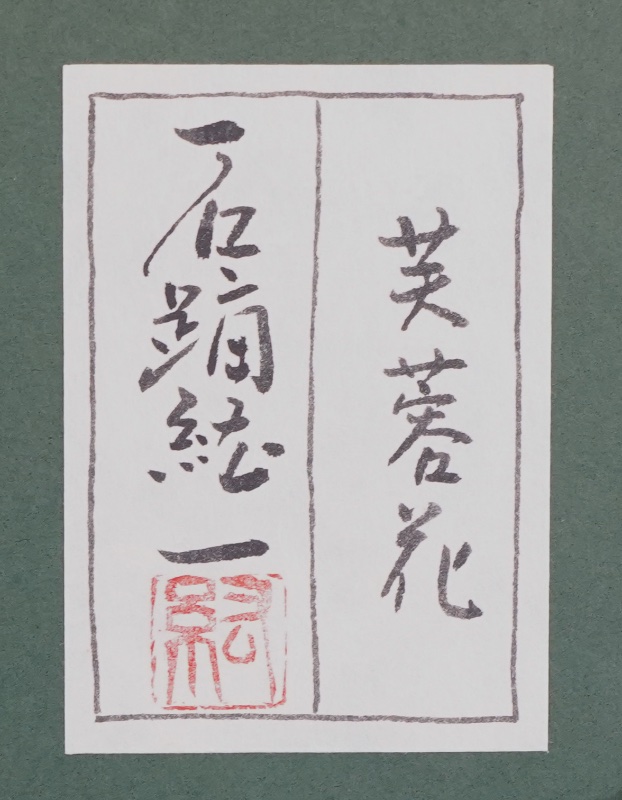 芙蓉花
石蹢紘一
紘